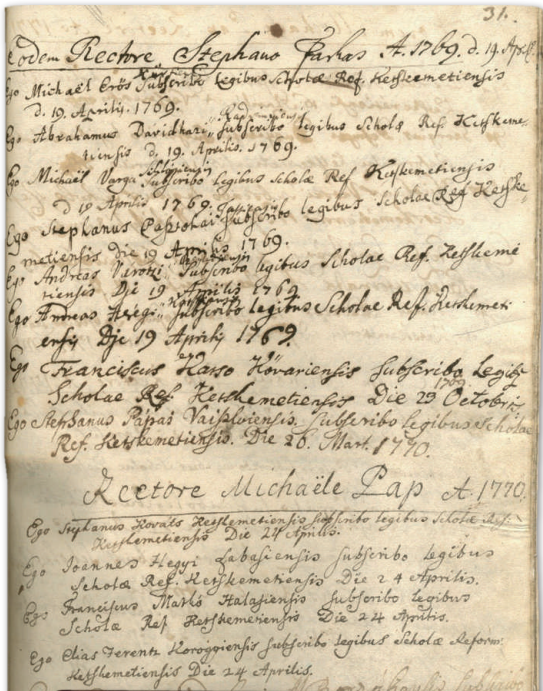 31.
eodem Rectore Stephano Farkas A. 1769. d. 19. April.
Ego Michaël Erös Subscribo Legibus Scholæ Ref. Ketskemetiensis
d. 19. Aprilis. 1769.
Ego Abrahamus Davidhazi Subscribo legibus Scholæ Ref. Ketskeme-
tiensis d. 19. Aprilis. 1769.
Ego Michaël Varga Subscribo legibus Scholæ Ref Ketskemetiensis
d 19 Aprilis 1769.
Ego Stephanus Subscribo legibus Scholae Ref Ketske-
metiensis die 19 Aprilis 1769.
Ego Andreas Subscribo legibus Scholae Ref. Ketskeme
tiensis Die 19 Aprilis 1769
Ego Andreas Subscribo legibus Scholae Ref. Ketskemeti
ensis Die 19 Aprilis 1769.
Ego Franciscus Hasso Subscribo Legib9
Scholae Ref. Ketskemetiensis Die 29 Octobris 1769
Ego Stephanus Pápai Subscribo legibus Scholae
Ref. Ketskemetiensis. Die 26. Mart. 1770.
Rectore Michaële Pap A. 1770.
Ego Stephanus Kováts Ketskemetiensis subscribo legibus Scholæ Ref.
Ketskemetiensis Die 24 Aprilis.
Ego Joannes Hegyi Labasiensis subscribo legibus
Scholæ Ref. Ketskemetiensis Die 24 Aprilis.
Ego Franciscus Markó Halasiensis subscribo legibus
Scholæ Ref Ketskemetiensis Die 24 Aprilis.
Ego Elias Ferentz Koroggiensis subscribo legibus Scholæ Reform.
Ketskemetiensis Die 24 Aprilis.